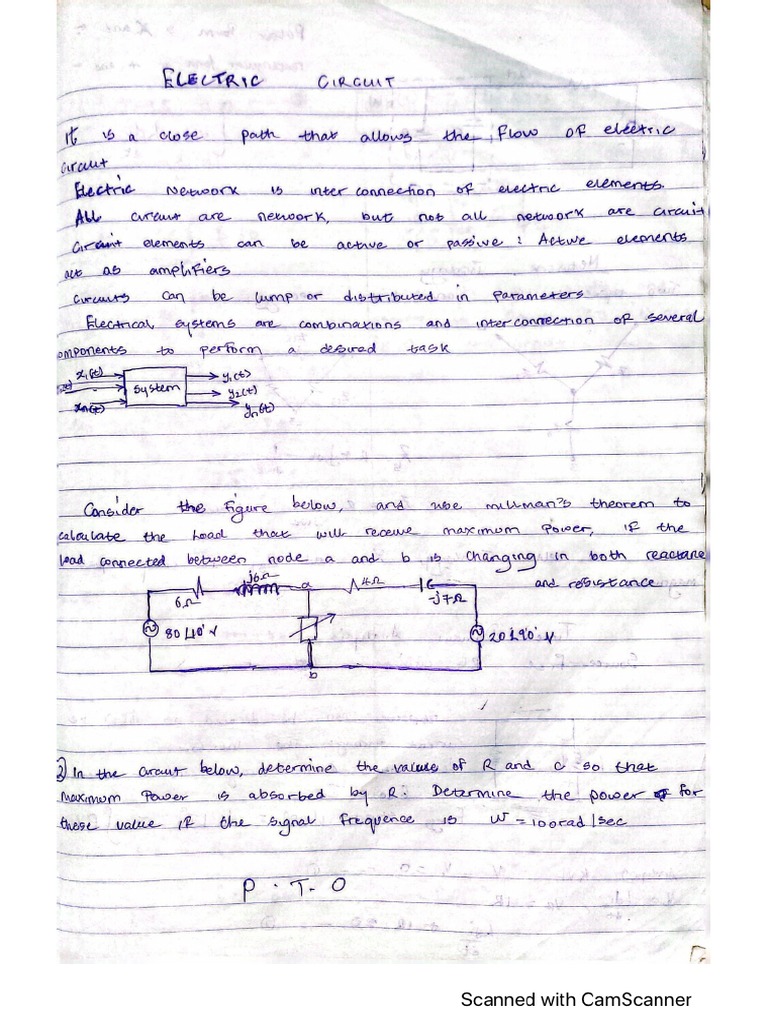 ELECTRIC CIRCUIT
It is a close path that allows the flow of electric
circuit
Electric Network is inter connection of electric elements.
All circuit are network, but not all network are circuit
Circuit elements can be active or passive: Active elements
act as amplifiers
Circuits can be lump or distributed in parameters
Electrical, systems are combinations and interconnection of several
omponents to perform a desired task
x1(t) system y1(t)
y2(t)
xn(t) yn(t)
Consider the figure below, and use millman's theorem to
calculate the Load that will receive maximum Power, if the
load connected between node a and b is changing in both reactane
and resistance
6Ω j6Ω a 4Ω -j7Ω
80∠40° V 20∠90° V
b
2) In the circuit below, determine the values of R and C so that
maximum Power is absorbed by R: Determine the power for
those value if the signal frequence is W = 100rad/sec
P.T.O
Scanned with CamScanner